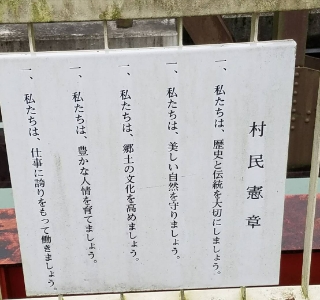 村民憲章
一、私たちは、歴史と伝統を大切にしましょう。
一、私たちは、美しい自然を守りましょう。
一、私たちは、郷土の文化を高めましょう。
一、私たちは、豊かな人情を育てましょう。
一、私たちは、仕事に誇りをもって働きましょう。